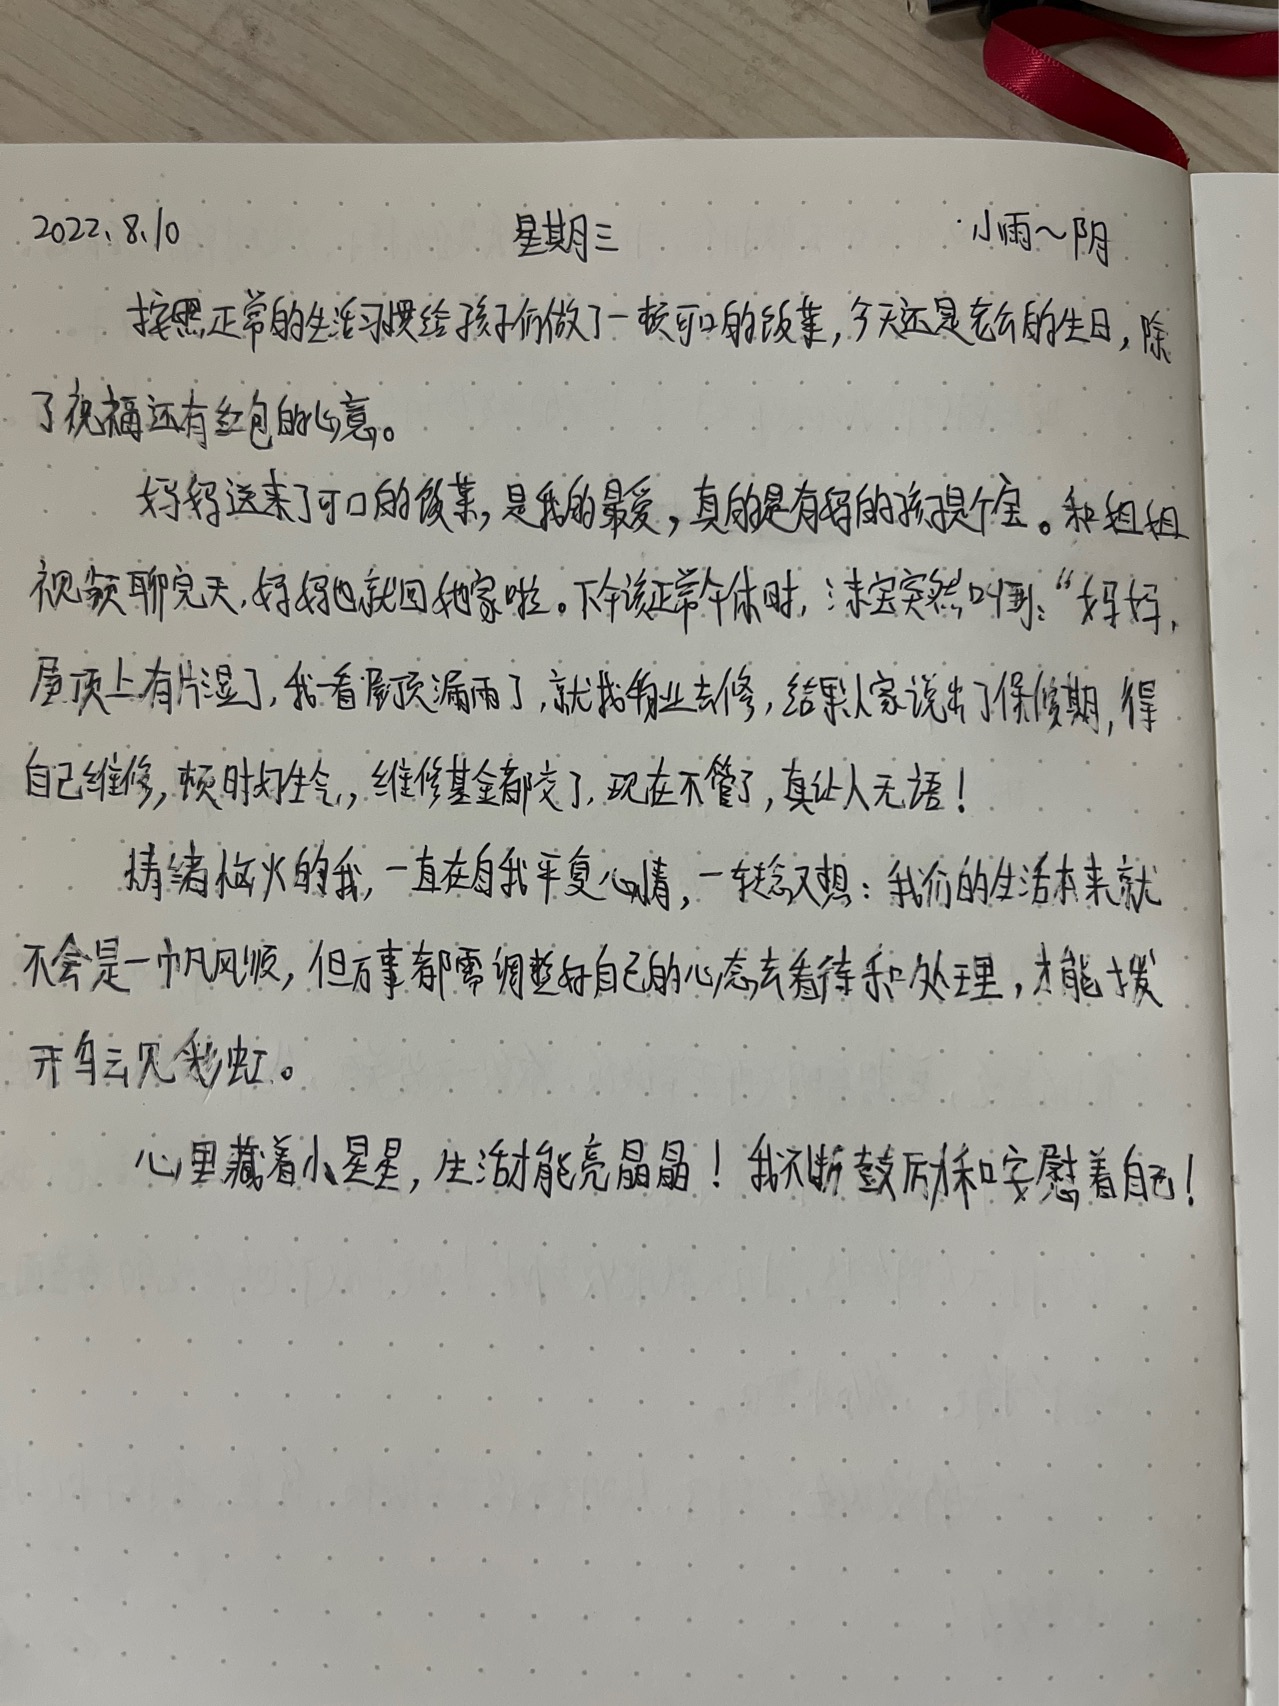 2022.8.10 星期三 小雨～阴
按照正常的生活习惯给孩子们做了一顿可口的饭菜，今天还是老么的生日，除
了祝福还有红包的心意。
妈妈送来了可口的饭菜，是我的最爱，真的是有妈的孩子是个宝。和姐姐
视频聊完天，妈妈也就回她家啦。下午该正常午休时，沫宝突然叫到：“妈妈，
屋顶上有片湿了，我一看屋顶漏雨了，就找物业去修，结果人家说出了保修期，得
自己维修，顿时好生气，维修基金都交了，现在不管了，真让人无语！
情绪恼火的我，一直在自我平复心情，一转念又想：我们的生活本来就
不会是一帆风顺，但万事都需调整好自己的心态去看待和处理，才能拨
开乌云见彩虹。
心里藏着小星星，生活才能亮晶晶！我不断鼓厉和安慰着自己！